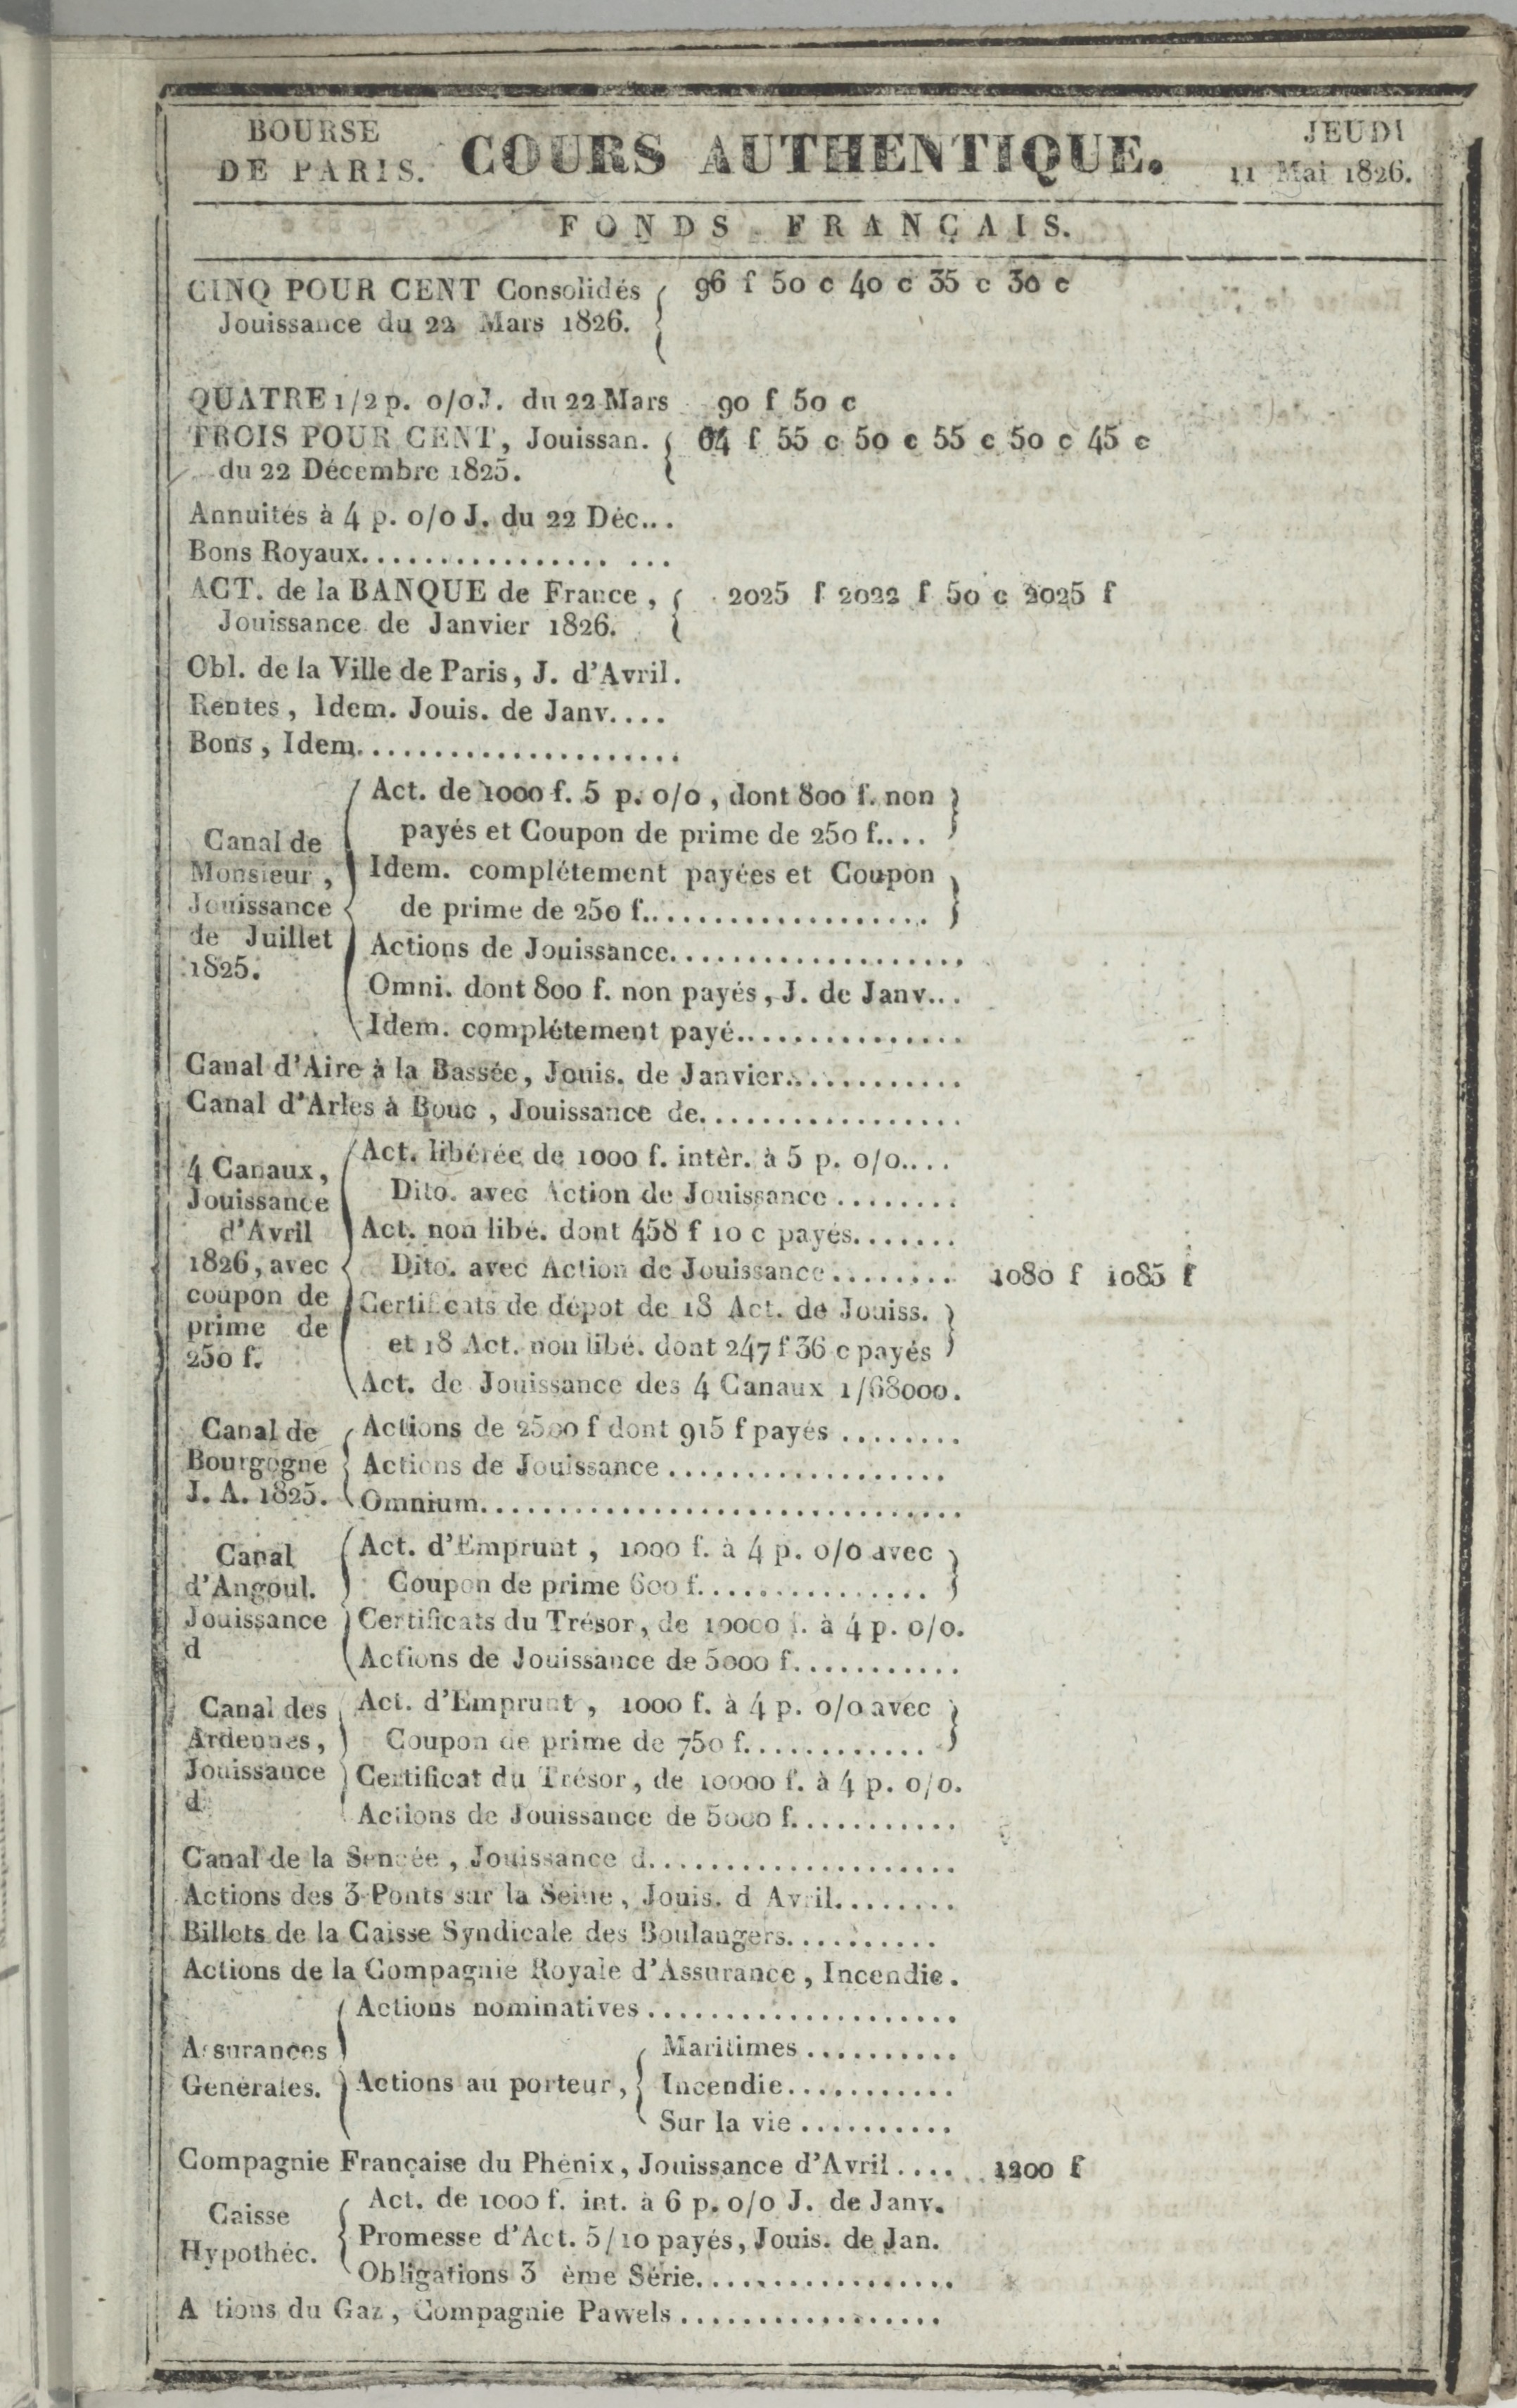 BOURSE
DE PARIS.
COURS AUTHENTIQUE.
JEUDI
11 Mai 1826.
FONDS FRANÇAIS.
CINQ POUR CENT Consolidés
Jouissance du 22 Mars 1826.
96 f 50 c 40 c 35 c 30 c
QUATRE 1/2 p. o/o J. du 22 Mars 90 f 50 c
TROIS POUR CENT, Jouissan.
du 22 Décembre 1825.
64 f 55 c 50 c 55 c 50 c 45 c
Annuités à 4 p. o/o J. du 22 Déc...
Bons Royaux................ ...
ACT. de la BANQUE de France,
Jouissance de Janvier 1826.
2025 f 2022 f 50 c 2025 f
Obl. de la Ville de Paris, J. d'Avril.
Rentes, Idem. Jouis. de Janv....
Bons, Idem.....................
Canal de
Monsieur,
Jouissance
de Juillet
1825.
Act. de 1000 f. 5 p. o/o, dont 800 f. non
payés et Coupon de prime de 250 f....
Idem. complétement payées et Coupon
de prime de 250 f...................
Actions de Jouissance...................
Omni. dont 800 f. non payés, J. de Janv...
Idem. complétement payé...............
Canal d'Aire à la Bassée, Jouis. de Janvier............
Canal d'Arles à Bouc, Jouissance de.................
4 Canaux,
Jouissance
d'Avril
1826, avec
coupon de
prime de
250 f.
Act. libérée de 1000 f. intèr. à 5 p. o/o....
Dito. avec Action de Jouissance ........
Act. non libé. dont 458 f 10 c payés.......
Dito. avec Action de Jouissance........ 1080 f 1085 f
Certificats de dépot de 18 Act. de Jouiss.
et 18 Act. non libé. dont 247 f 36 c payés
Act. de Jouissance des 4 Canaux 1/68000.
Canal de
Bourgogne
J. A. 1825.
Actions de 2500 f dont 915 f payés ........
Actions de Jouissance ..................
Omnium...............................
Canal
d'Angoul.
Jouissance
d
Act. d'Emprunt, 1000 f. à 4 p. o/o avec
Coupon de prime 600 f...............
Certificats du Trésor, de 10000 f. à 4 p. o/o.
Actions de Jouissance de 5000 f...........
Canal des
Ardennes,
Jouissance
d
Act. d'Emprunt, 1000 f. à 4 p. o/o avec
Coupon de prime de 750 f............
Certificat du Trésor, de 10000 f. à 4 p. o/o.
Actions de Jouissance de 5000 f...........
Canal de la Sensée, Jouissance d....................
Actions des 3 Ponts sur la Seine, Jouis. d Avril........
Billets de la Caisse Syndicale des Boulangers..........
Actions de la Compagnie Royale d'Assurance, Incendie.
Assurances
Génerales.
Actions nominatives ....................
Actions au porteur,
Maritimes ..........
Incendie...........
Sur la vie ..........
Compagnie Française du Phénix, Jouissance d'Avril .... 1200 f
Caisse
Hypothéc.
Act. de 1000 f. int. à 6 p. o/o J. de Janv.
Promesse d'Act. 5/10 payés, Jouis. de Jan.
Obligations 3 ème Série.................
A tions du Gaz, Compagnie Pawels .................